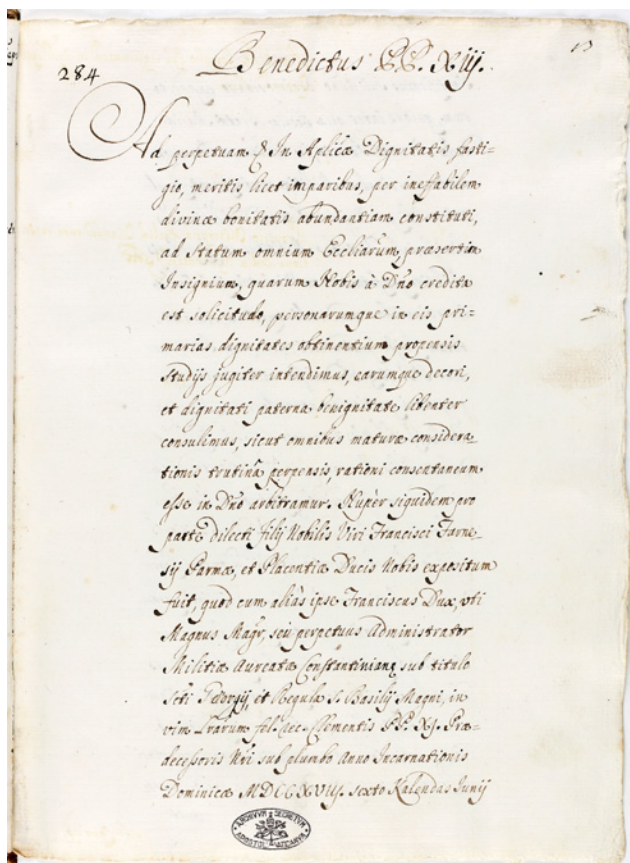 Benedictus P.P. XIIJ.
13
284
Ad perpetuam &c. In Aplicæ Dignitatis fasti=
gio, meritis licet imparibus, per ineffabilem
divinæ bonitatis abundantiam constituti,
ad Statum omnium Eccliarum, præsertim
Insignium, quarum Nobis à Dño credita
est solicitudo, personarumque in eis pri=
marias dignitates obtinentium propensis
studijs jugiter intendimus, earumque decori,
et dignitati paterna benignitate libenter
consulimus, sicut omnibus maturæ considera_
tionis trutinâ perpensis, rationi consentaneum
esse in Dño arbitramur. Nuper siquidem pro
parte dilecti filij Nobilis Viri Francisci Farne_
sij Parmæ, et Placentiæ Ducis Nobis expositum
fuit, quod cum aliàs ipse Franciscus Dux, uti
Magnus Magr, seu perpetuus Administrator
Militiæ Aureatæ Constantinianę sub titulo
Scti Georgij, et Regula S. Basilij Magni, in
vim Lrarum fel. rec. Clementis PP. XJ. Præ=
decessoris Nri sub plumbo Anno Incarnationis
Dominicæ MDCCXVIIJ. sexto Kalendas Junij
ARCHIVVM SECRETVM
APOSTOL. VATICANVM